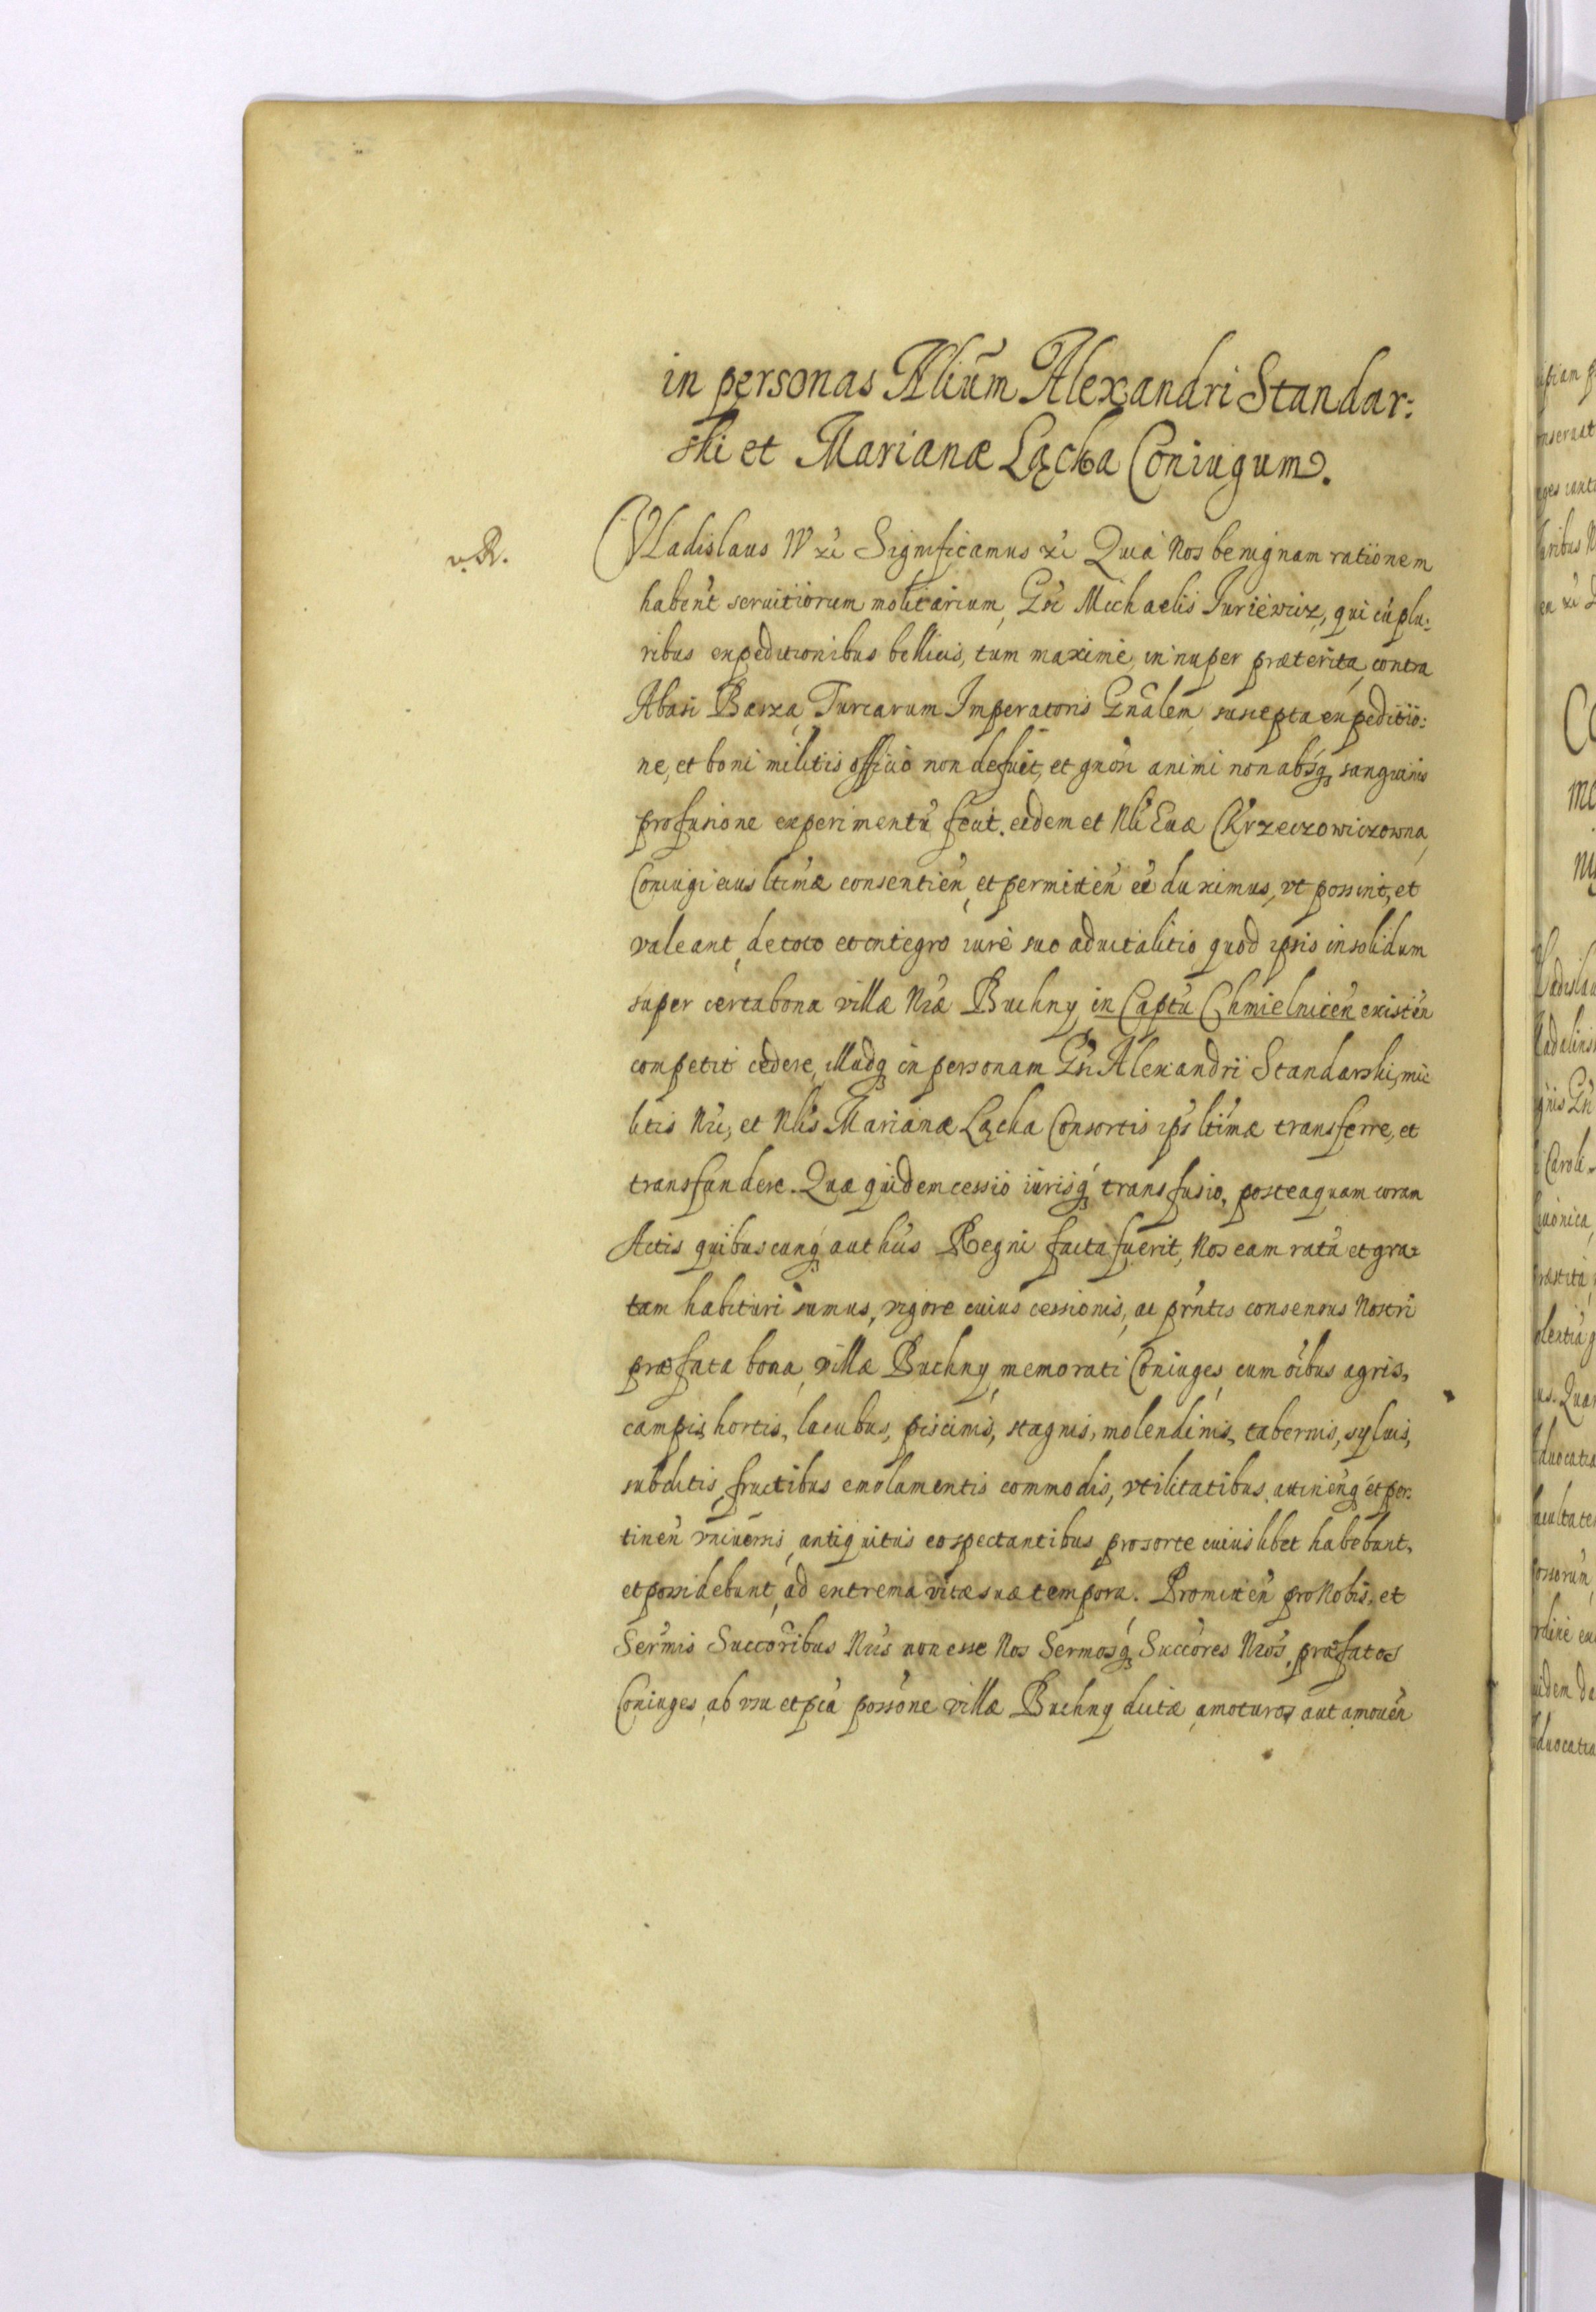 in personas Nlium Alexandri Standar:
ski et Marianæ Lącka Coniugum.
v.R.
Vladislaus IV etc Significamus etc Quia Nos benignam rationem
haben't seruitiorum militarium, Gsi Michaelis Juriewicz, qui cu plu:
ribus expeditionibus bellicis, tum maxime, in nuper præterita, contra
Abasi Baszą Turcarum Imperatoris Gnalem suscepta expeditio:
ne, et boni militis officio non defuit, et gnosi animi non absq sanguinis
profusione experimentu fecit. eidem et Nli Euæ Krzeczowiczowna
Coniugi eius ltimæ consentien, et permitten ee duximus, vt possint, et
valeant, de toto et integro iure suo aduitalitio quod ipsis insolidum
super certa bona villæ Nræ Buchny in Captu Chmielnicen existen
competit cedere, illudq in personam Gsi Alexandri Standarski, mi
litis Nri, et Nlis Marianæ Lącka Consortis ips ltimæ transferre, et
transfundere. Quæ quidem cessio iurisq transfusio, posteaquam coram
Actis quibuscunq authcis Regni facta fuerit, Nos eam ratu et gra:
tam habituri sumus, vigore cuius cessionis, ac prntis consensus Nostri
præfata bona, villæ Buchny memorati Coniuges, cum oibus agris,
campis, hortis, lacubus, piscinis, stagnis, molendinis, tabernis, syluis,
subditis, fructibus emolumentis commodis, vtilitatibus, attinenq et per:
tinen vniuersis, antiquitus eo spectantibus pro sorte cuiuslibet habebunt,
et possidebunt, ad extrema vitæ suæ tempora. Promitten pro Nobis, et
Sermis Succoribus Nris non esse Nos Sermosq Succores Nros, præfatos
Coniuges, ab vsu et pca possone villæ Buchny dictæ, amoturos aut amouen